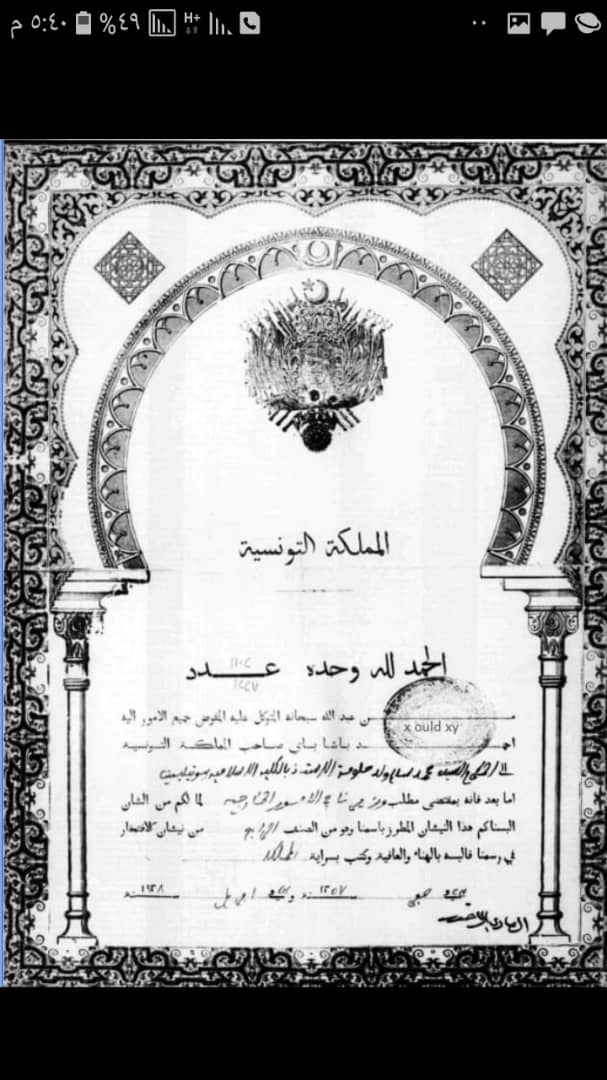 م ٥:٤٠ %٤٩ H+
المملكة التونسية
الحمد لله وحده عـــدد
من عبد الله سبحانه المتوكل عليه المفوض جميع الامور اليه
x ould xy
احمـــد باشا باي صاحب المملكة التونسية
الى
اما بعد فانه بمقتضى مطلب وزيرنا الامور الخارجية لما لكم من الشان
البسناكم هذا النيشان المطرز باسمنا وهو من الصنف الرابع من نيشان الافتخار
في رسمنا فالبسه بالهناء والعافية وكتب بسراية المملكة
في صفر ١٣٥٧ سنة وفي ابريل ١٩٣٨ سنة